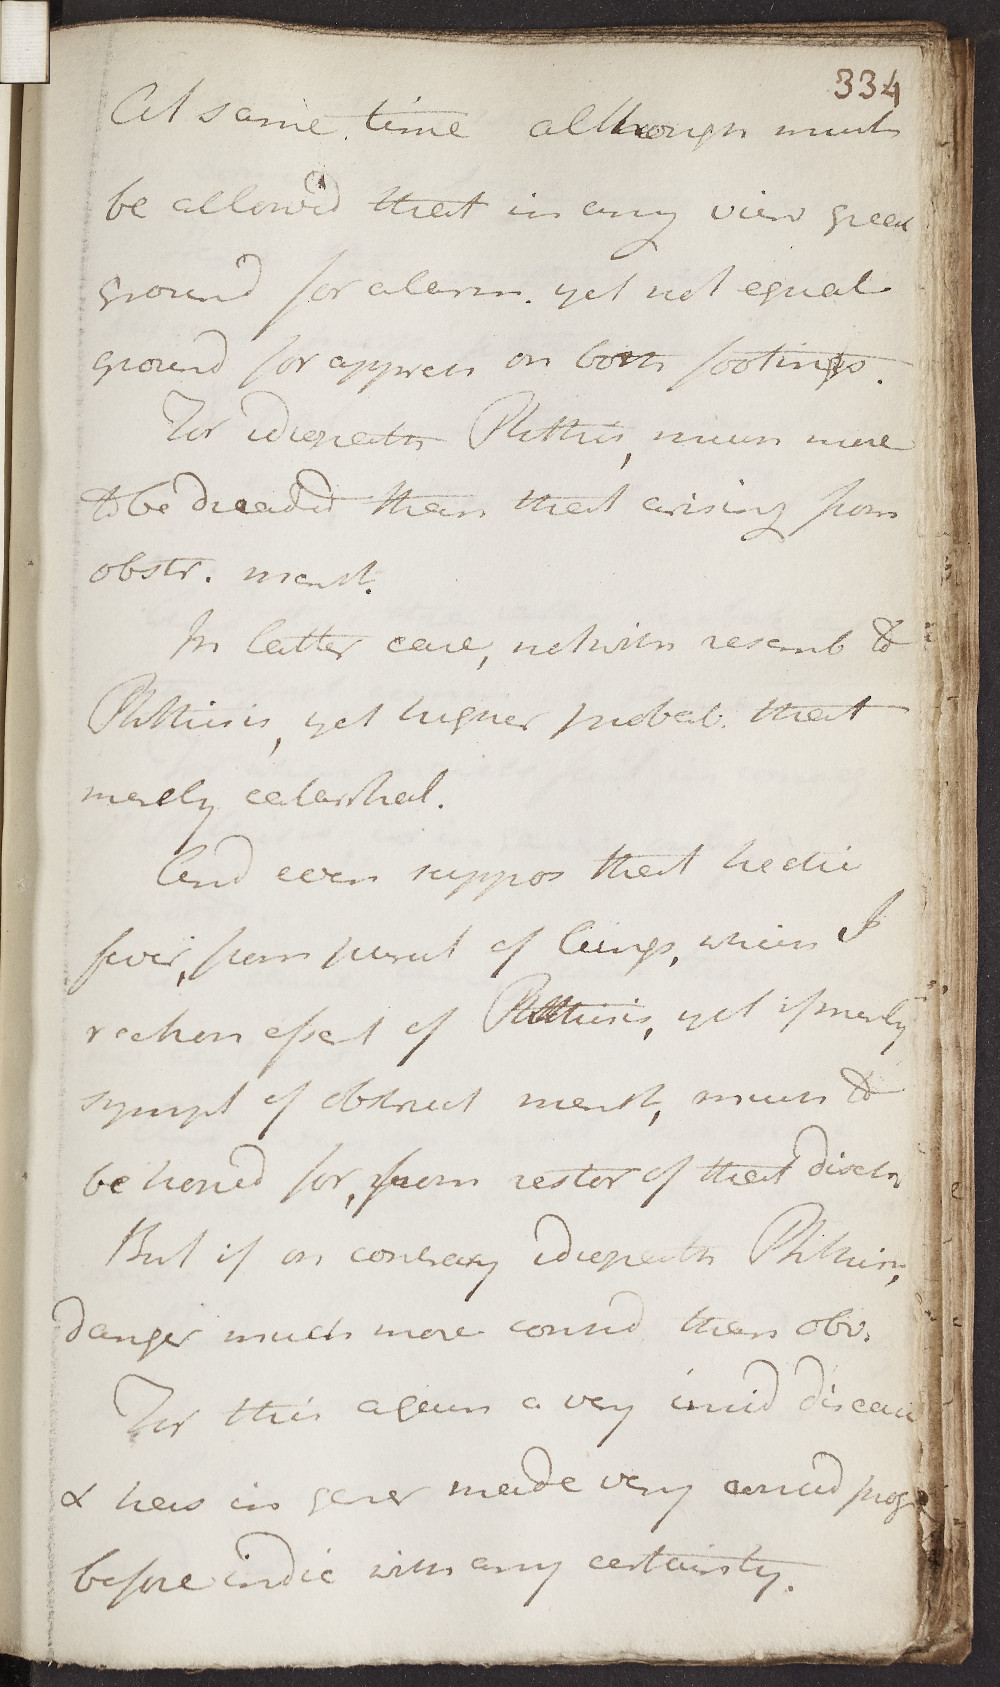 334
At same time although must
be allow'd that in any view great
ground for alarm. yet not equal
ground for appreh on both footings.
For idiopath Phthis, much more
to be dreaded than that arising from
obstr. menst.
In latter case, notwith resemb to
Phthisis, yet higher probab. that
merely catarrhal.
And even suppos that hectic
fever, from purul of lungs, which I
reckon essent of Phthisis, yet if merely
sympt of obstruct menst, much to
be hoped for, from restor of that disch
But if on contrary idiopath Phthisis,
danger much more consid than obv.
For this again a very insid disease
& has in gener made very consid prog
before indic with any certainty.